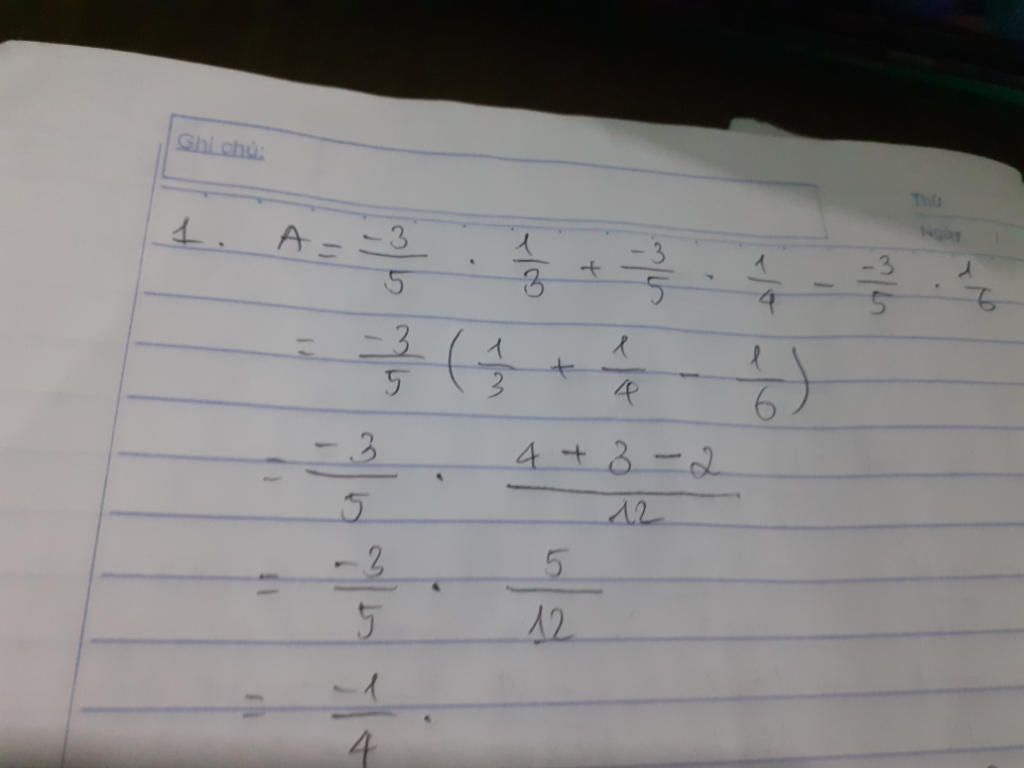 Ghi chú:
Thứ
Ngày
1. A = -3/5 . 1/3 + -3/5 . 1/4 - -3/5 . 1/6
= -3/5 (1/3 + 1/4 - 1/6)
= -3/5 . 4 + 3 - 2/12
= -3/5 . 5/12
= -1/4 .